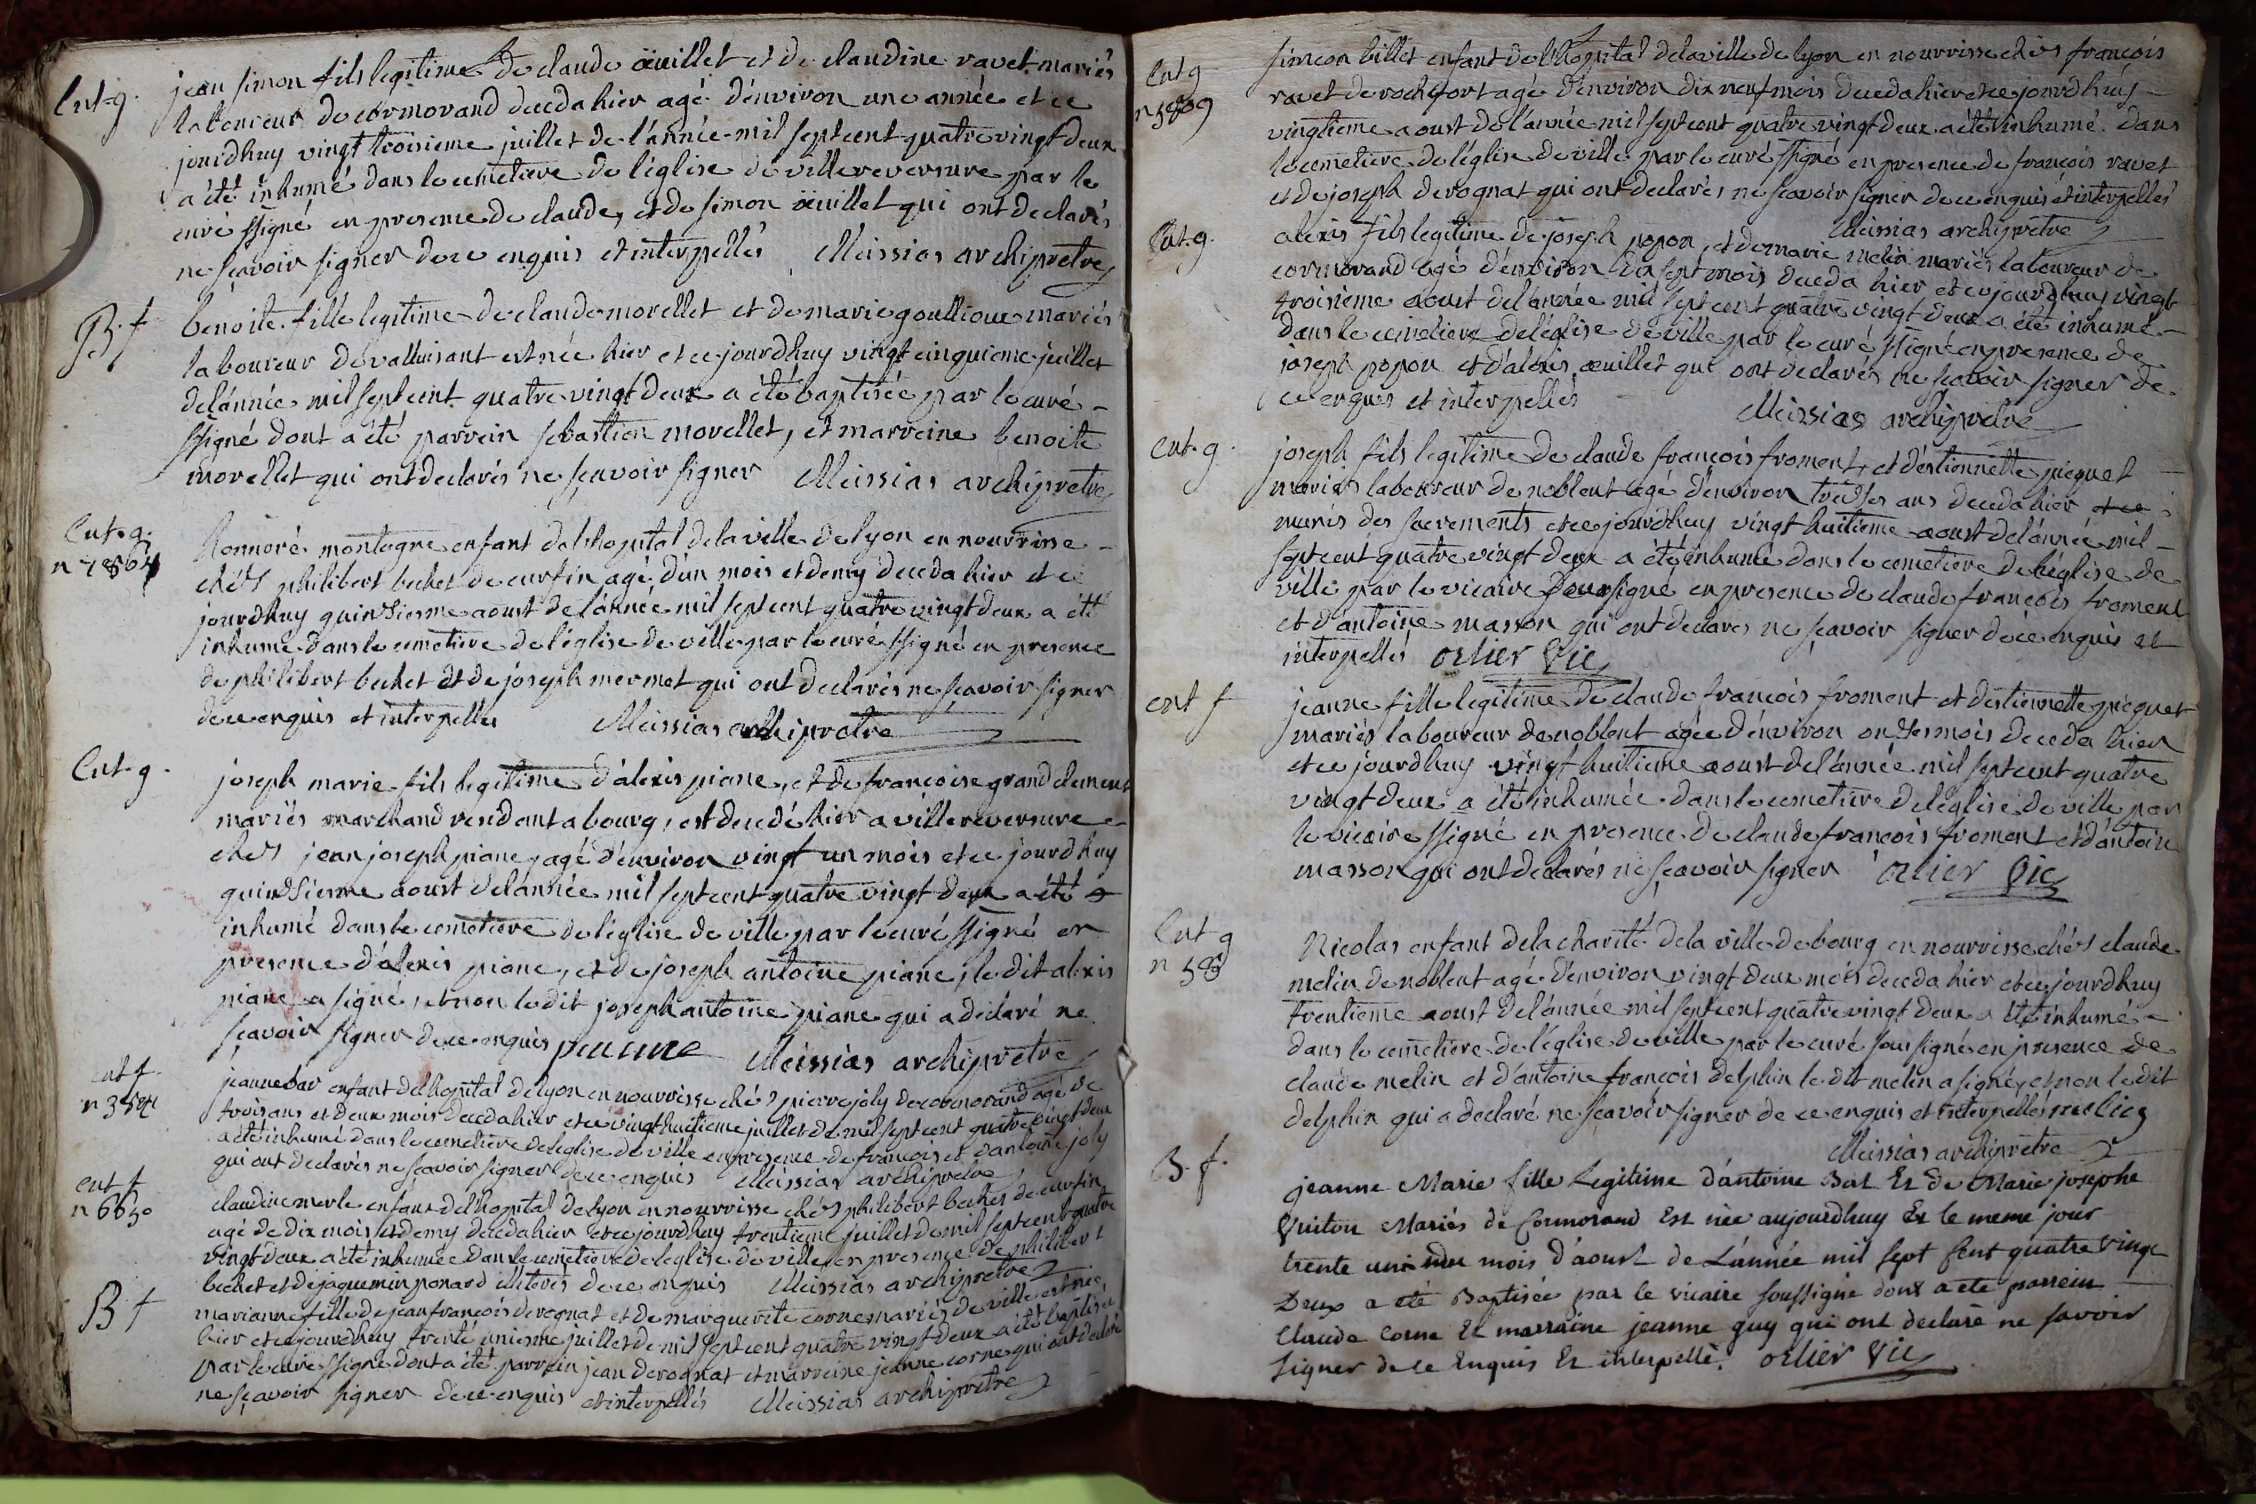 Ent. g.
jean simon fils legitime de claude œuillet et de claudine ravet mariés
laboureur de cormorand deceda hier agé d'environ une année et ce
jourdhuy vingt troisieme juillet de l'année mil sept cent quatre vingt deux
a été inhumé dans le cemetiere de l'église de villereversure par le
curé ssigné en presence de claude, et de simon œuillet qui ont declarés
ne sçavoir signer de ce enquis et interpellés Meissias archipretre
B. f.
benoite fille legitime de claude morellet et de marie goullioux mariés
laboureur de valluisant est née hier et ce jourdhuy vingt cinquieme juillet
de l'année mil sept cent quatre vingt deux a été baptisée par le curé
ssigné dont a été parrein sebastien morellet, et marreine benoite
morellet qui ont declarés ne sçavoir signer Meissias archiprêtre
Ent. g.
honnoré montagne enfant de l'hopital de la ville de lyon en nourrisse
chés philibert bechet de curtin agé d'un mois et demy deceda hier et ce
jourdhuy quinsiesme aoust de l'année mil sept cent quatre vingt deux a été
inhumé dans le cemetiere de l'église de ville par le curé ssigné en presence
de philibert bechet et de joseph mermet qui ont declarés ne sçavoir signer
de ce enquis et interpellés Meissias archipretre
Ent. g.
joseph marie fils legitime d'alexis piane, et de francoise grand clement
mariés marchand resident a bourg, est decedé hier a villereversure
chés jean joseph piane, agé d'environ vingt un mois et ce jourdhuy
quinsiesme aoust de l'année mil sept cent quatre vingt deux a été
inhumé dans le cemetiere de l'église de ville par le curé ssigné en
presence d'alexis piane, et de joseph antoine piane, le dit alexis
piane a signé, et non le dit joseph antoine piane qui a déclaré ne
sçavoir signer de ce enquis Meissias archiprêtre
ent f.
enfant de l'hopital de lyon en nourrisse chés pierre joly de cormorand agé de
trois ans et deux mois deceda hier et ce vingt huitieme juillet de mil sept cent quatre vingt deux
a été inhumé dans le cemetiere de l'église de ville en presence de francois et d'antoine joly
qui ont declarés ne sçavoir signer de ce enquis Meissias archiprêtre
ent f
n 6650
claudine merle enfant de l'hopital de lyon en nourrisse chés philibert bechet de curtin
agé de dix mois et demy deceda hier et ce jourdhuy trentieme juillet de mil sept cent quatre
vingt deux a été inhumée dans le cemetiere de l'église de ville en presence de philibert
bechet et de jaquemin ponard illiterés de ce enquis Meissias archipretre
B f
marianne fille de jean francois derognat et de marguerite corne mariés de ville est née
hier et ce jourdhuy trente unieme juillet de mil sept cent quatre vingt deux a été baptisée
par le curé ssigné dont a été parrein jean derognat et marreine jeanne corne qui ont declaré
ne sçavoir signer de ce enquis et interpellés Meissias archiprêtre
Ent g
n 5809
simeon billet enfant de l'hopital de la ville de lyon en nourrisse chés françois
ravet de rochefort agé d'environ dix neuf mois deceda hier et ce jourdhuy
vingtieme aoust de l'année mil sept cent quatre vingt deux a été inhumé dans
le cemetiere de l'église de ville par le curé ssigné en presence de françois ravet
et de joseph derognat qui ont declarés ne sçavoir signer de ce enquis et interpellés
Meissias archiprêtre
Ent. g.
alexis fils legitime de joseph popon, et de marie melin mariés laboureur de
cormorand agé d'environ dix sept mois deceda hier et ce jourdhuy vingt
troisieme aoust de l'année mil sept cent quatre vingt deux a été inhumé
dans le cemetiere de l'église de ville par le curé ssigné en presence de
joseph popon et d'alexis œuillet qui ont declarés ne sçavoir signer de
ce enquis et interpellés Meissias archipretre
Ent. g.
joseph fils legitime de claude françois froment, et d'estiennette picquet
mariés laboureur de noblent agé d'environ treises ans deceda hier et ce
munis des sacrements et ce jourdhuy vingt huitieme aoust de l'année mil
sept cent quatre vingt deux a été inhumé dans le cemetiere de l'église de
ville par le vicaire soussigné en presence de claude françois froment
et d'antoine masson qui ont declarés ne sçavoir signer de ce enquis et
interpellés orlier Vic
ent f
jeanne fille legitime de claude françois froment et d'estiennette picquet
mariés laboureur de noblent agée d'environ onses mois deceda hier
et ce jourdhuy vingt huitieme aoust de l'année mil sept cent quatre
vingt deux a été inhumée dans le cemetiere de l'église de ville par
le vicaire ssigné en presence de claude francois froment et d'antoine
masson qui ont declarés ne sçavoir signer orlier Vic
Ent g
n 58
Nicolas enfant de la charité de la ville de bourg en nourrisse chés claude
melin de noblent agé d'environ vingt deux mois deceda hier et ce jourdhuy
trentieme aoust de l'année mil sept cent quatre vingt deux a été inhumé
dans le cemetiere de l'église de ville par le curé sousigné en presence de
claude melin et d'antoine françois delphin le dit melin a signé, et non le dit
delphin qui a declaré ne sçavoir signer de ce enquis et interpellés melin
Meissias archiprêtre
B. f.
jeanne Marie fille Legitime d'antoine Bat Et de Marie josephe
Vuiton Mariés de Cormorand Est née aujourdhuy Et le meme jour
trente un du mois d'aoust de L'année mil sept Cent quatre Vingt
Deux a été Baptisée par le vicaire soussigné dont a été parrein
Claude Corne Et marraine jeanne guy qui ont declaré ne savoir
signer de ce Enquis Et interpellé. orlier Vic